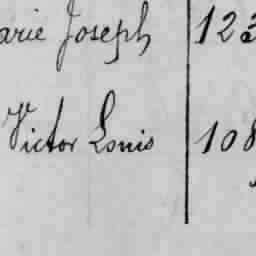 arie Joseph 12
Victor Louis 108